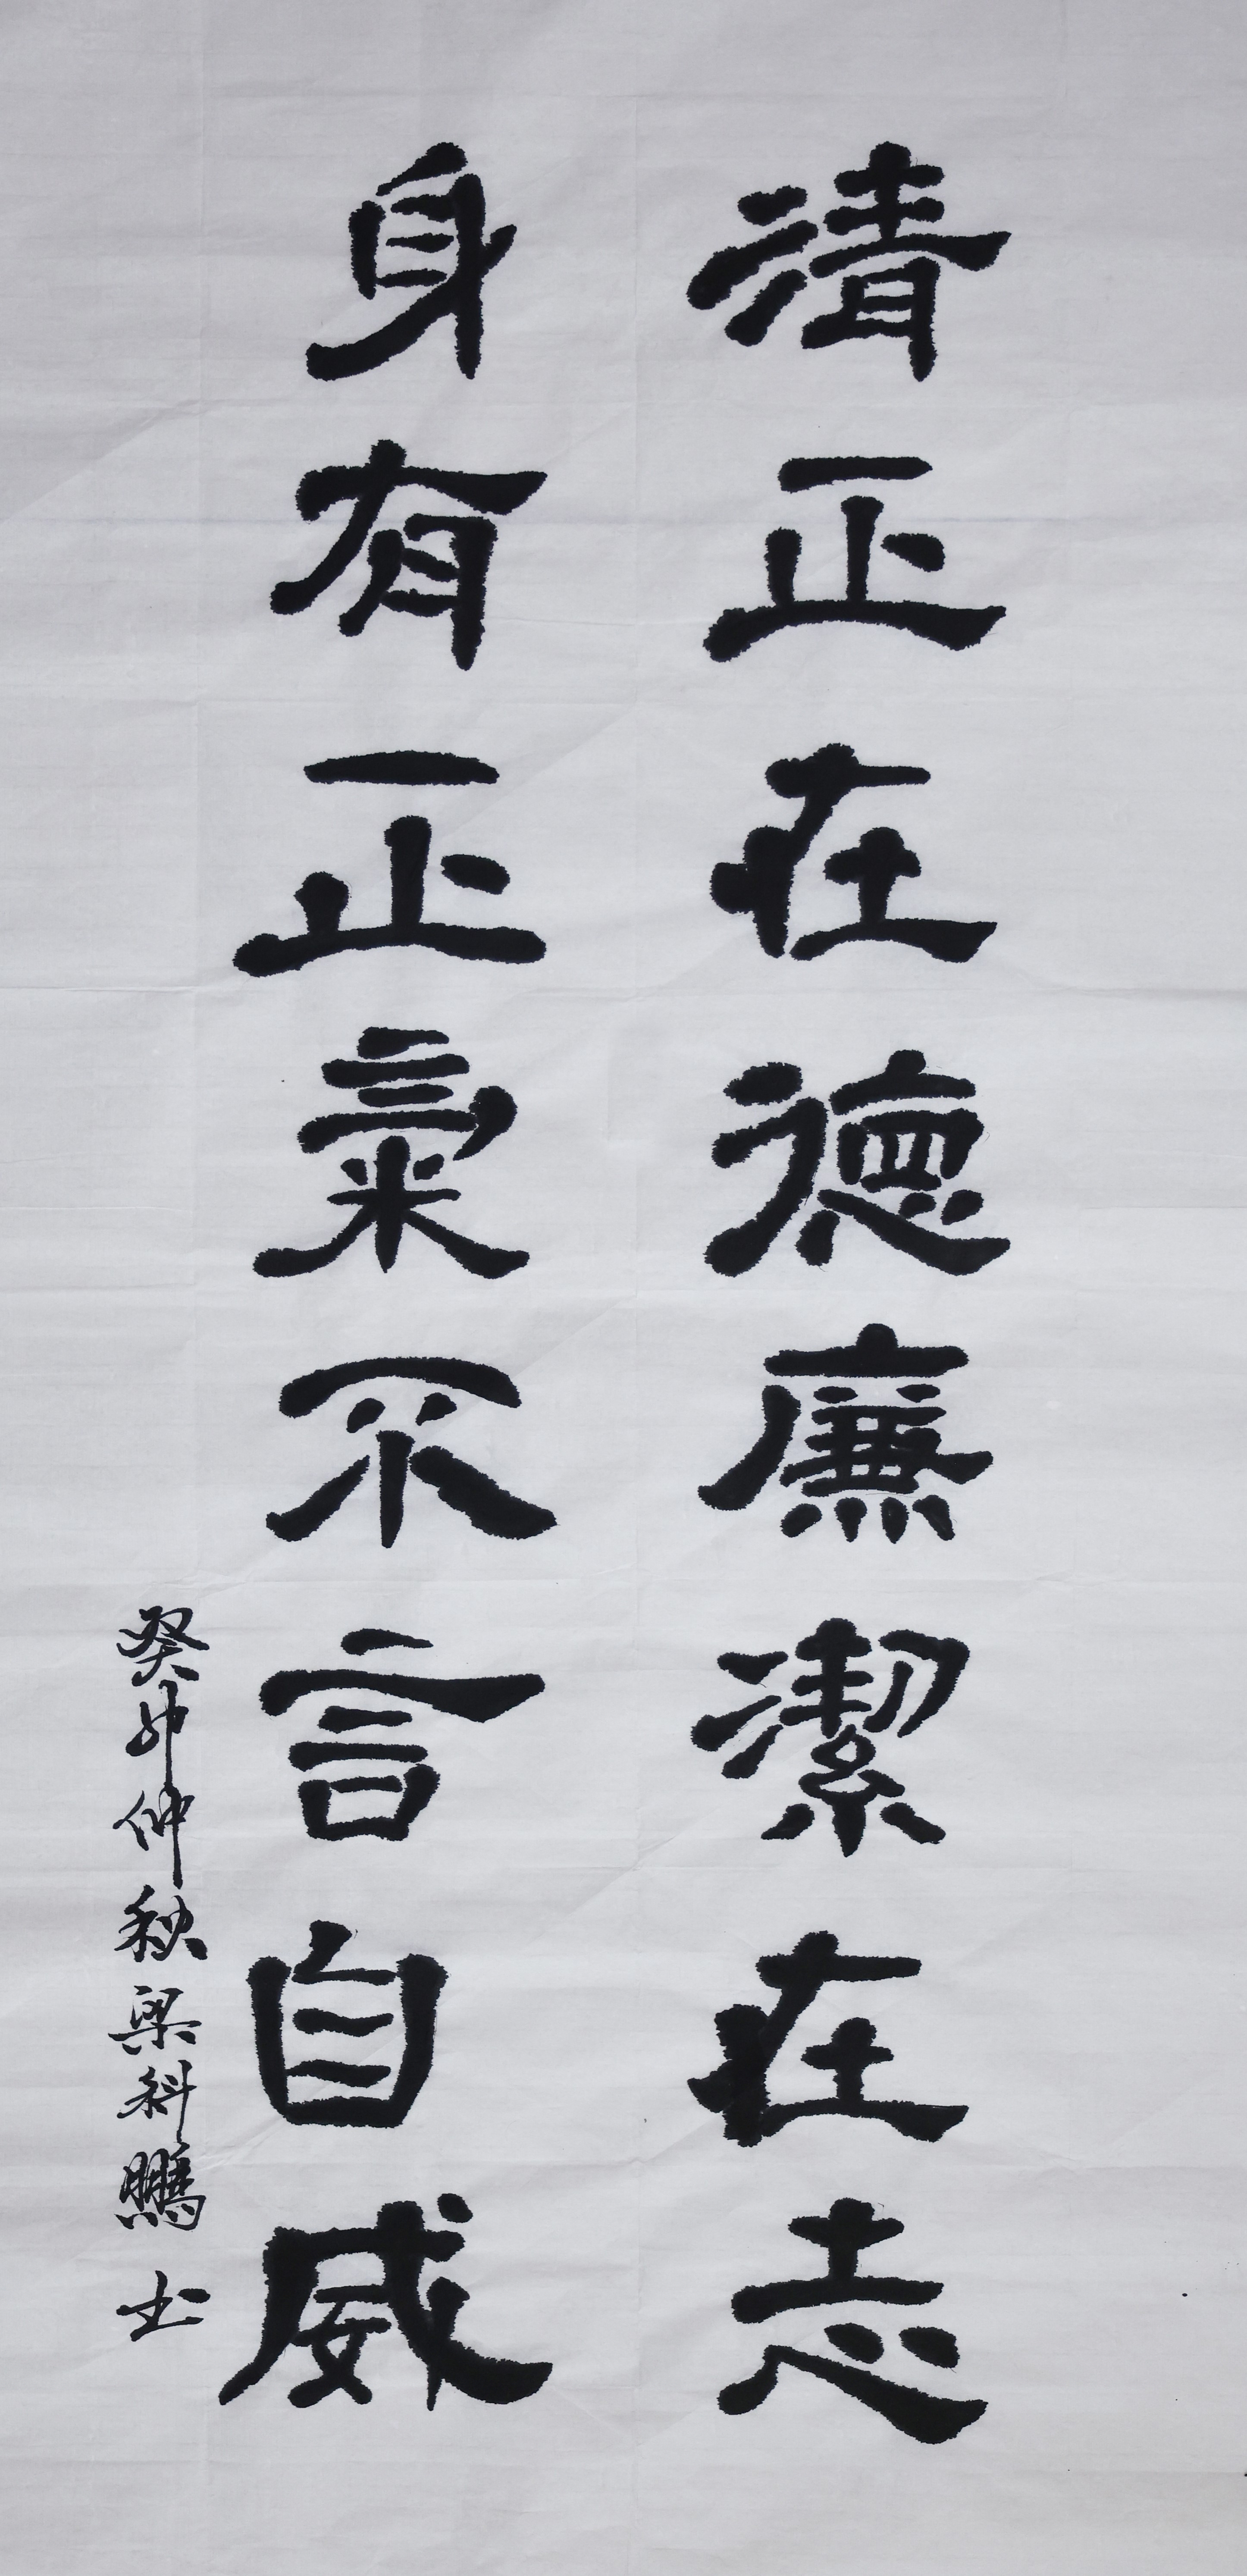 清正在德廉潔在志
身有正氣不言自威
癸卯仲秋梁科鵬书